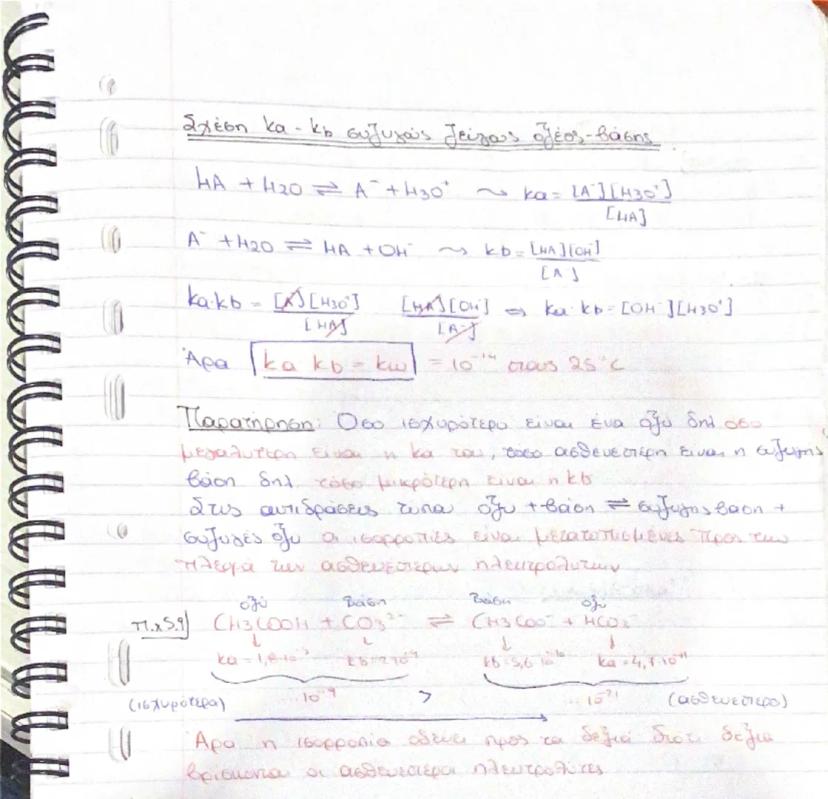 Σχέση ka - kb συζυγούς ζεύγους οξέος-βάσης
HA + H2O ⇌ A⁻ + H3O⁺ ⤳ ka = [A⁻][H3O⁺] / [HA]
A⁻ + H2O ⇌ HA + OH⁻ ⤳ kb = [HA][OH⁻] / [A⁻]
ka·kb = [A⁻][H3O⁺] / [HA] [HA][OH⁻] / [A⁻] ⇒ ka·kb = [OH⁻][H3O⁺]
Άρα ka kb = kω = 10⁻¹⁴ στους 25°C
Παρατήρηση: Όσο ισχυρότερο είναι ένα οξύ δηλ όσο
μεγαλύτερη είναι η ka του, τόσο ασθενέστερη είναι η συζυγής
βάση δηλ τόσο μικρότερη είναι η kb
Στις αντιδράσεις τύπου οξύ + βάση ⇌ συζυγης βαση +
συζυγές οξυ οι ισορροπίες είναι μετατοπισμένες προς την
πλευρά των ασθενέστερων ηλεκτρολυτών
οξύ βάση βάση οξύ
π.χ 5.9] CH3COOH + CO3²⁻ ⇌ CH3COO⁻ + HCO3⁻
ka = 1,8·10⁻⁵ kb = 2·10⁻⁴ kb = 5,6·10⁻¹⁰ ka = 4,7·10⁻¹¹
(ισχυρότερα) ...10⁻⁹ > ...10⁻²¹ (ασθενέστερο)
Άρα η ισορροπία οδεύει προς τα δεξιά διότι δεξιά
βρίσκονται οι ασθενέστεροι ηλεκτρολύτες